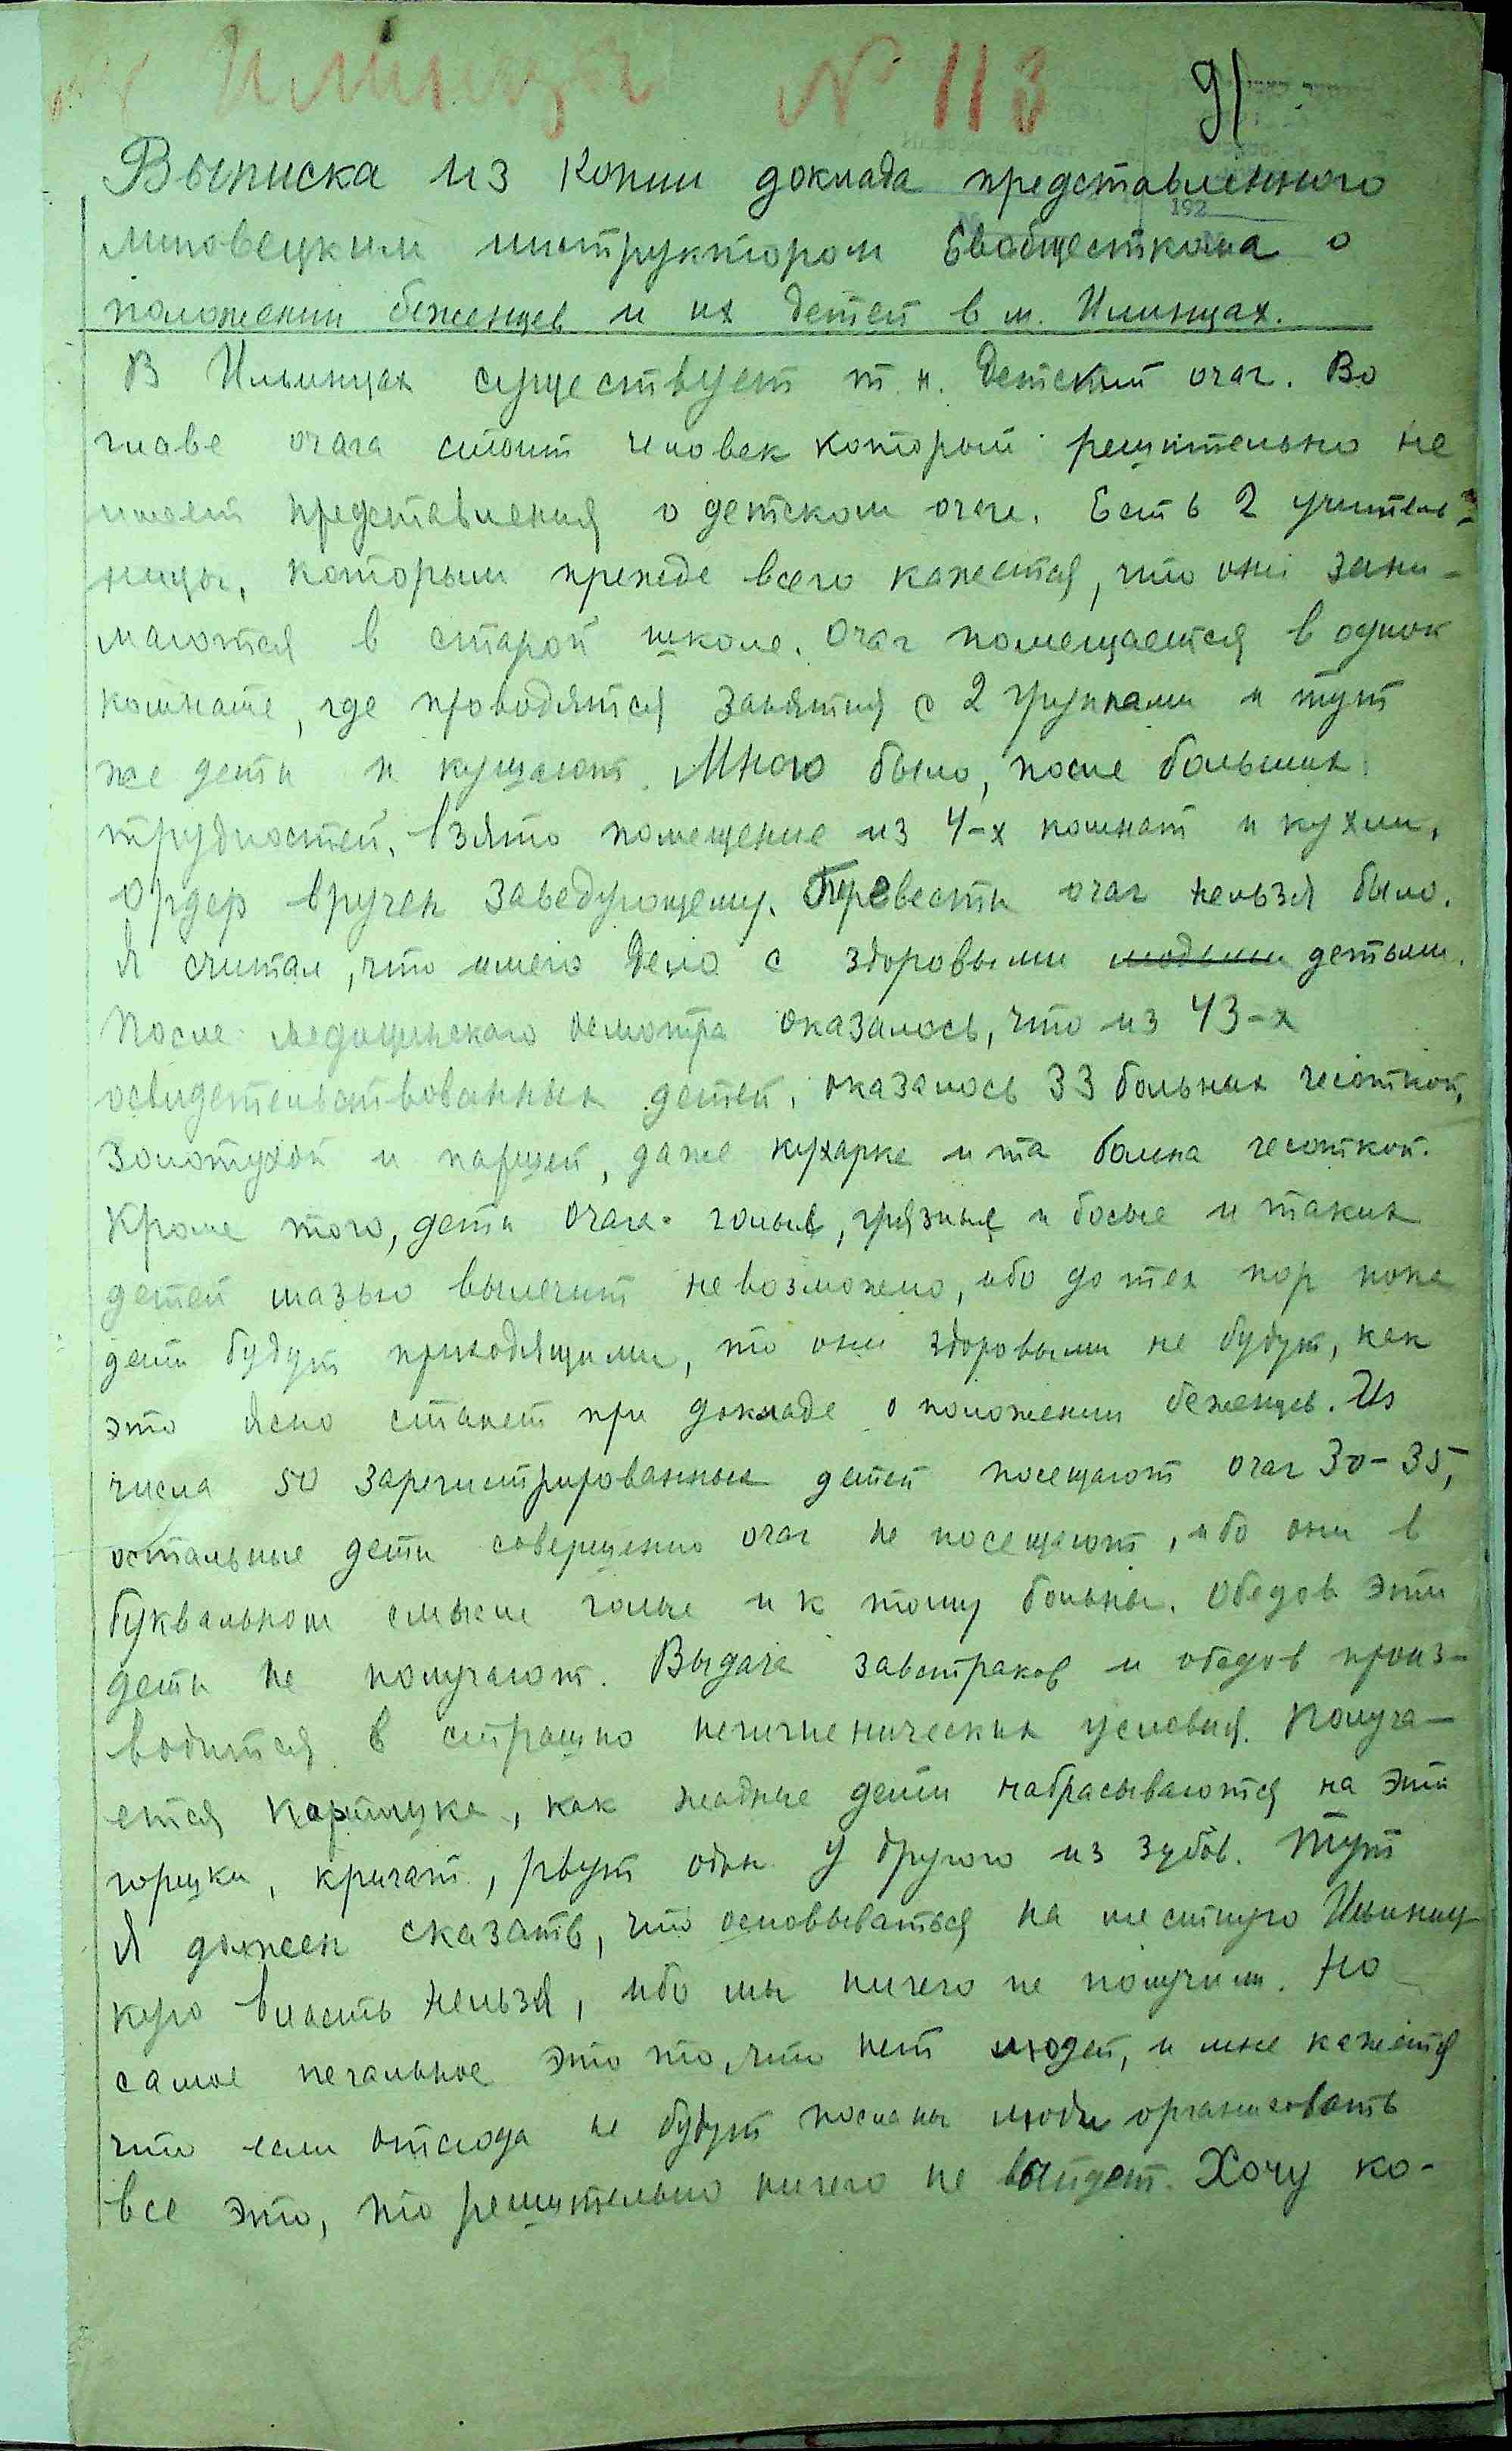 Илинцы № 113 91
Выписка из копии доклада представленного
Липовецким инструктором Евобщесткома о
положении беженцев и их детей в м. Илинцах.
В Ильинцах существует т.н. Детский очаг. Во
главе очага стоит человек который решительно не
имеет представления о детском очаге. Есть 2 учитель-
ницы, которым прежде всего кажется, что они зани-
маются в старой школе. Очаг помещается в одной
комнате, где проводятся занятия с 2 группами и тут
же дети и кушают. Мною было, после больших
трудностей, взято помещение из 4-х комнат и кухни,
ордер вручен заведующему. Перевести очаг нельзя было.
Я считал, что имею дело с здоровыми людьми детьми.
После медицинского осмотра оказалось, что из 43-х
освидетельствованных детей, оказалось 33 больных чесоткой,
золотухой и паршей, даже кухарке и та больна чесоткой.
Кроме того, дети очага голые, грязные и босые и таких
детей мазью вылечить невозможно, ибо до тех пор пока
дети будут приходящими, то они здоровыми не будут, как
это ясно станет при докладе о положении беженцев. Из
числа 50 зарегистрированных детей посещают очаг 30-35,
остальные дети совершенно очаг не посещают, ибо они в
буквальном смысле голые и к тому больны. Обедов эти
дети не получают. Выдача завтраков и обедов произ-
водится в страшно негигиенических условия. Получа-
ется картинка, как жадные дети набрасываются на эти
горшки, кричат, рвут один у другого из зубов. Тут
я должен сказать, что основываться на местную Ильинц-
кую власть нельзя, ибо мы ничего не получим. Но
самое печальное это то, что нет людей, и мне кажется
что если отсюда не будут посланы люди организовать
все это, то решительно ничего не выйдет. Хочу ко-
192